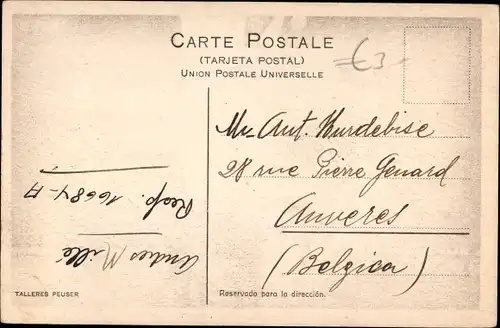 CARTE POSTALE
(TARJETA POSTAL)
UNION POSTALE UNIVERSELLE
€3-
Mr. Ant. Kurdebise
28 rue Pierre Genard
Anveres
(Belgica)
Resp. 16684-A
Andres Millé
TALLERES PEUSER
Reservado para la dirección.